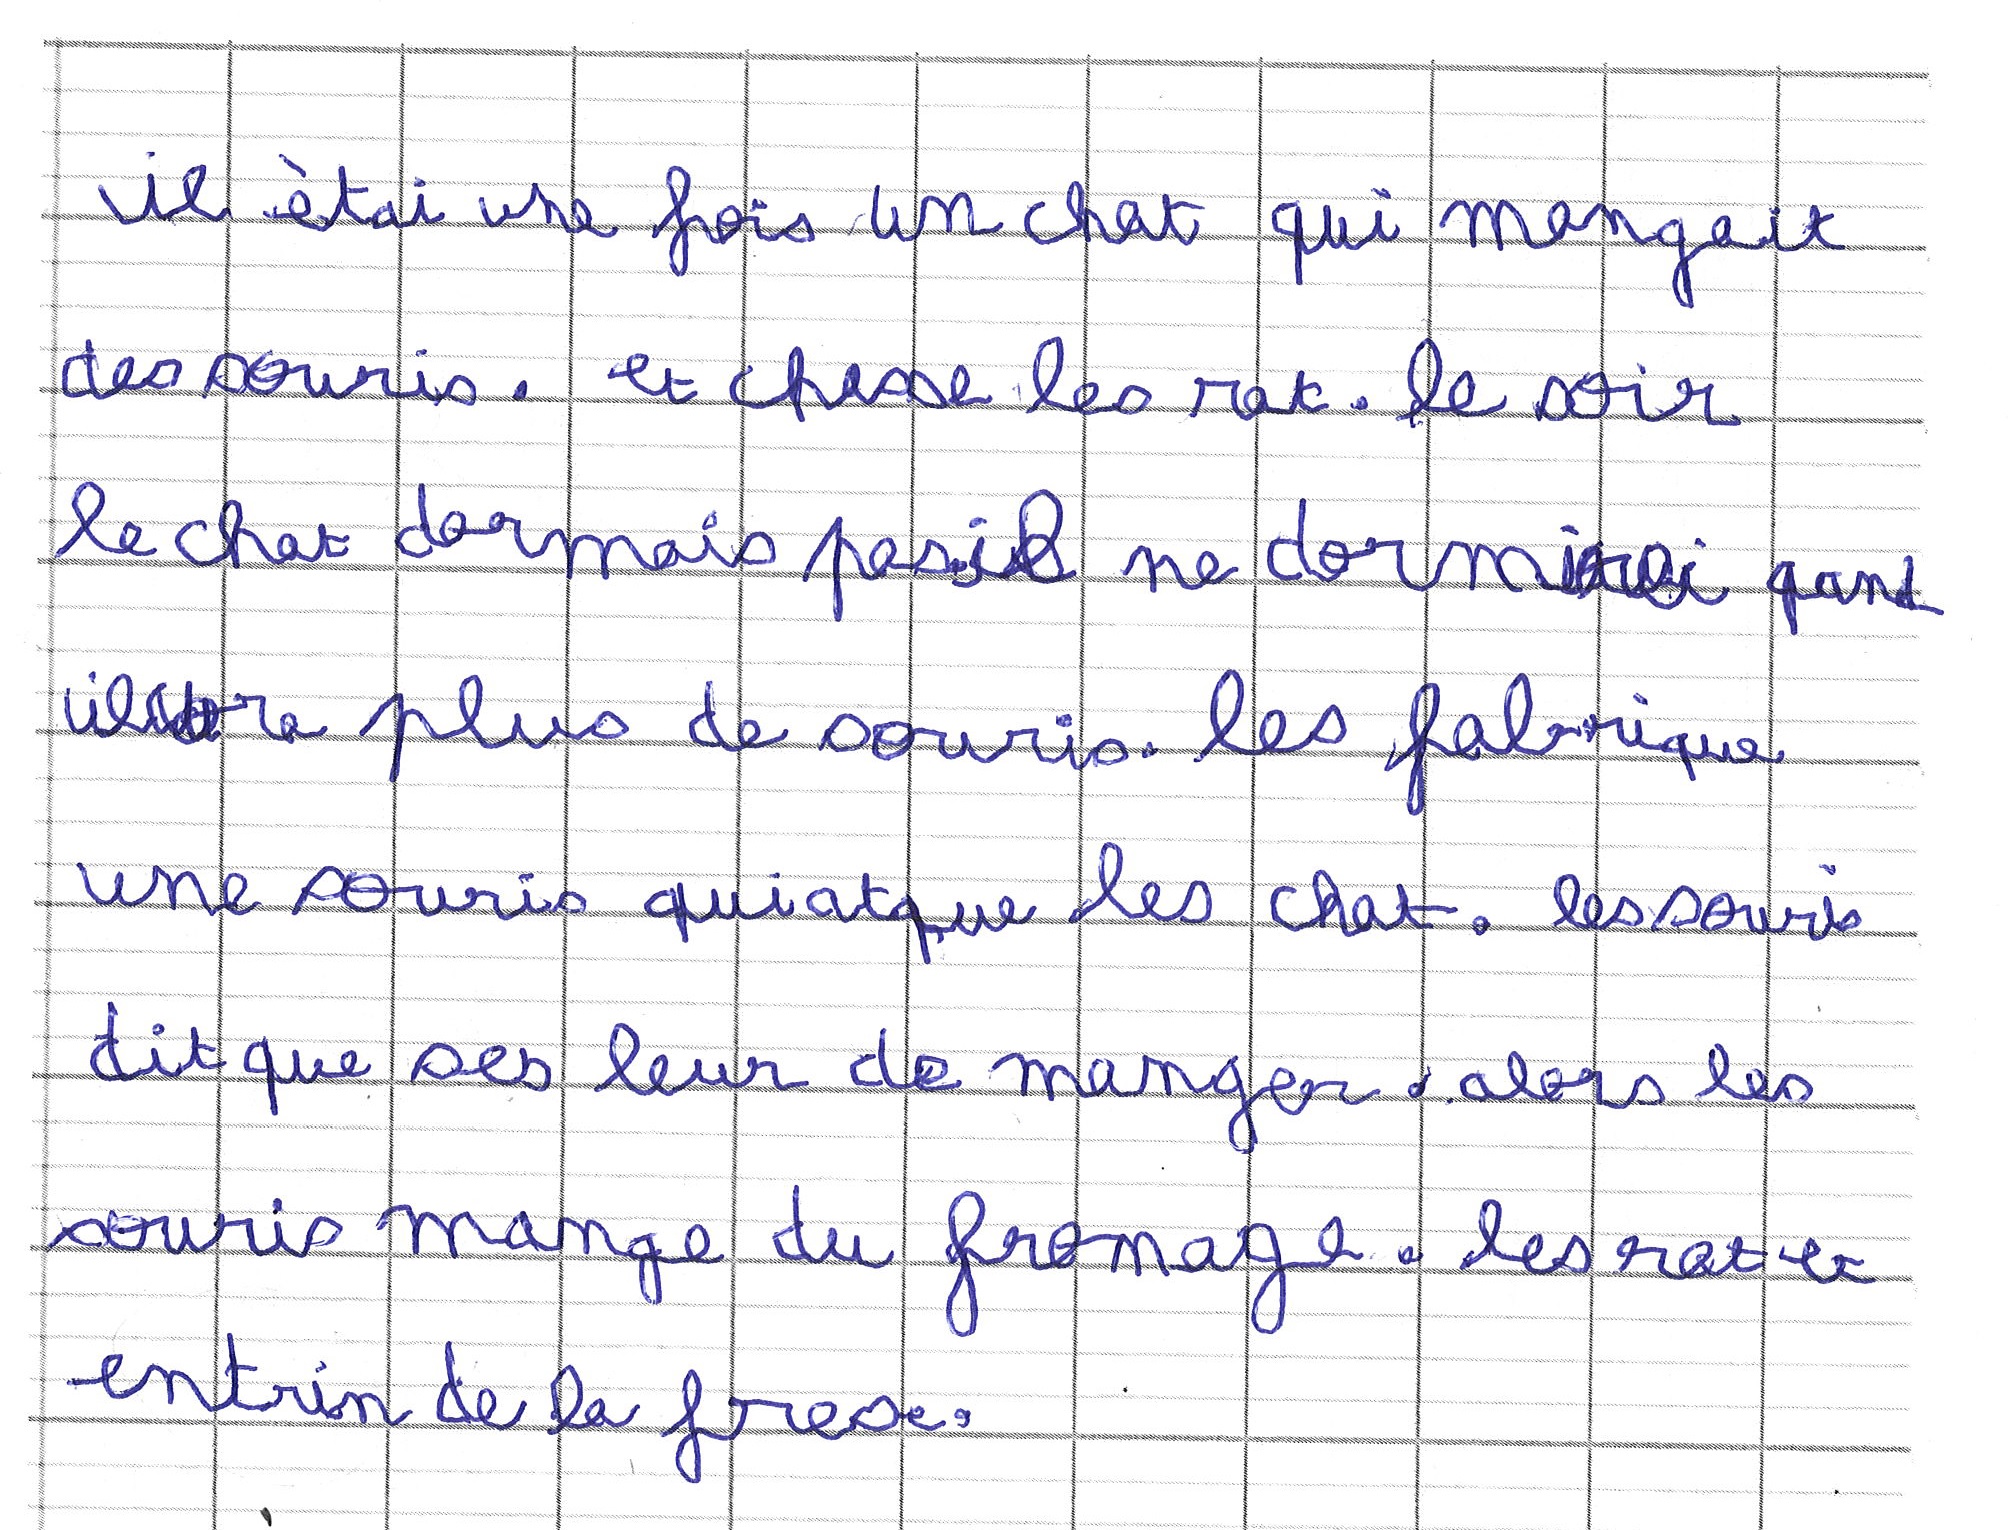 il ètai une fois un chat qui mangait
des souris. et chasse les rat. le soir
le chat dormais pas il ne dormirai qand
il ora plus de souris. les fabrique
une souris qui atque les chat. les souris
dit que ses leur de manger. alors les
souris mange du fromage. les rat et
entrin de la frese.